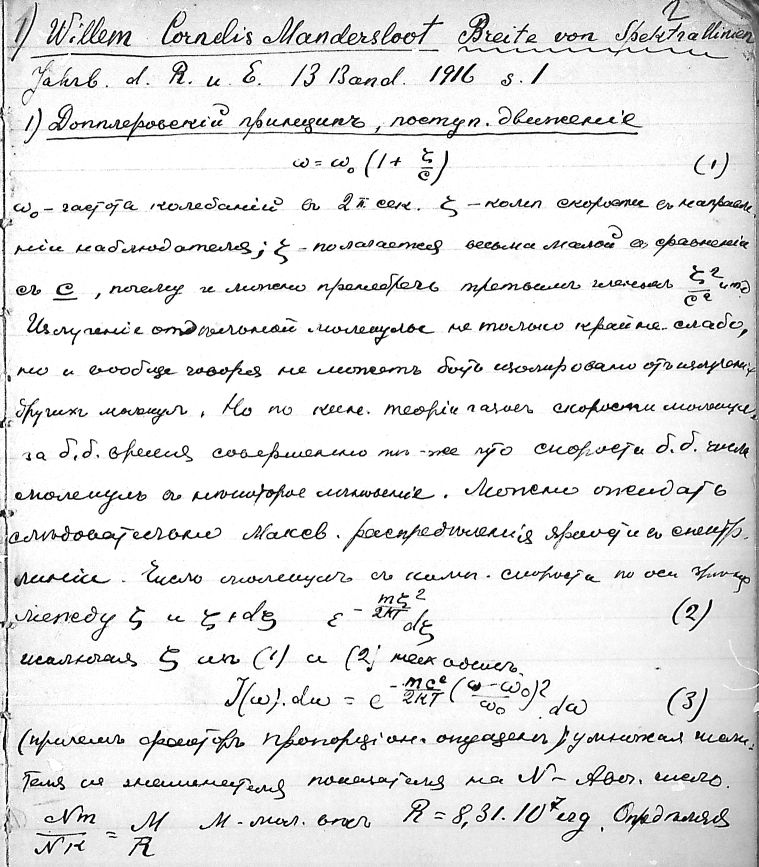 2
1) Willem Cornelis Mandersloot Breite von Spektrallinien
Jahrb. d. R. u. E. 13 Band. 1916 s. 1
1) Допплеровскій принципъ, поступ. движеніе
ω = ω₀ (1 + ζ/c) (1)
ω₀ – частота колебаній въ 2π сек. ζ – комп скорости въ направле-
ніи наблюдателя; ζ – полагается весьма малой въ сравненіи
съ c, почему и можно пренебречь третьимъ членомъ ζ²/c² итд
Излученіе отдѣльной молекулы не только крайне слабо,
но и вообще говоря не можетъ быть изолировано отъ излученія
другихъ молекул. Но по кин. теоріи газов скорости молекул.
за б.б. время совершенно тѣ-же что скорости б.б. числа
молекулъ въ нѣкоторое мгновеніе. Можно ожидать
слѣдовательно Максв. распредѣленія яркости въ спектр.
линіи. Число молекулъ съ комп. скорости по оси
между ζ и ζ + dζ e^{-mζ²/2kT} dζ (2)
исключая ζ изъ (1) и (2) находимъ
J(ω).dω = e^{-mc²/2kT ((ω-ω₀)/ω₀)²} dω (3)
(причемъ факторъ пропорціон. опущенъ) умножая числи-
теля и знаменателя показателя на N – Авог. число.
Nm/Nk = M/R M – мол. вѣсъ R = 8,31.10⁷ erg. Опредѣляя